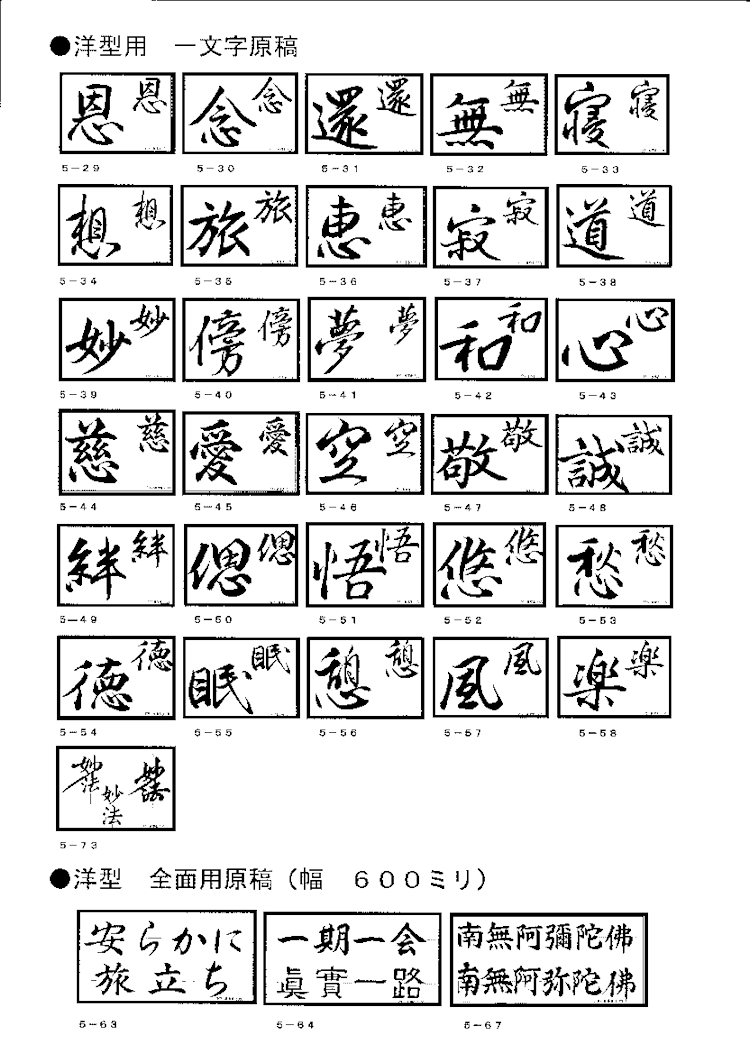 ●洋型用　一文字原稿
恩 恩 念 念 還 還 無 無 寝 寝
5-29 5-30 5-31 5-32 5-33
想 想 旅 旅 恵 恵 寂 寂 道 道
5-34 5-35 5-36 5-37 5-38
妙 妙 傍 傍 夢 夢 和 和 心 心
5-39 5-40 5-41 5-42 5-43
慈 慈 愛 愛 空 空 敬 敬 誠 誠
5-44 5-45 5-46 5-47 5-48
絆 絆 偲 偲 悟 悟 悠 悠 愁 愁
5-49 5-50 5-51 5-52 5-53
徳 徳 眠 眠 憩 憩 風 風 楽 楽
5-54 5-55 5-56 5-57 5-58
妙法 妙法 妙法
5-73
●洋型　全面用原稿（幅　６００ミリ）
安らかに 一期一会 南無阿彌陀佛
旅立ち 眞實一路 南無阿弥陀佛
5-63 5-64 5-67